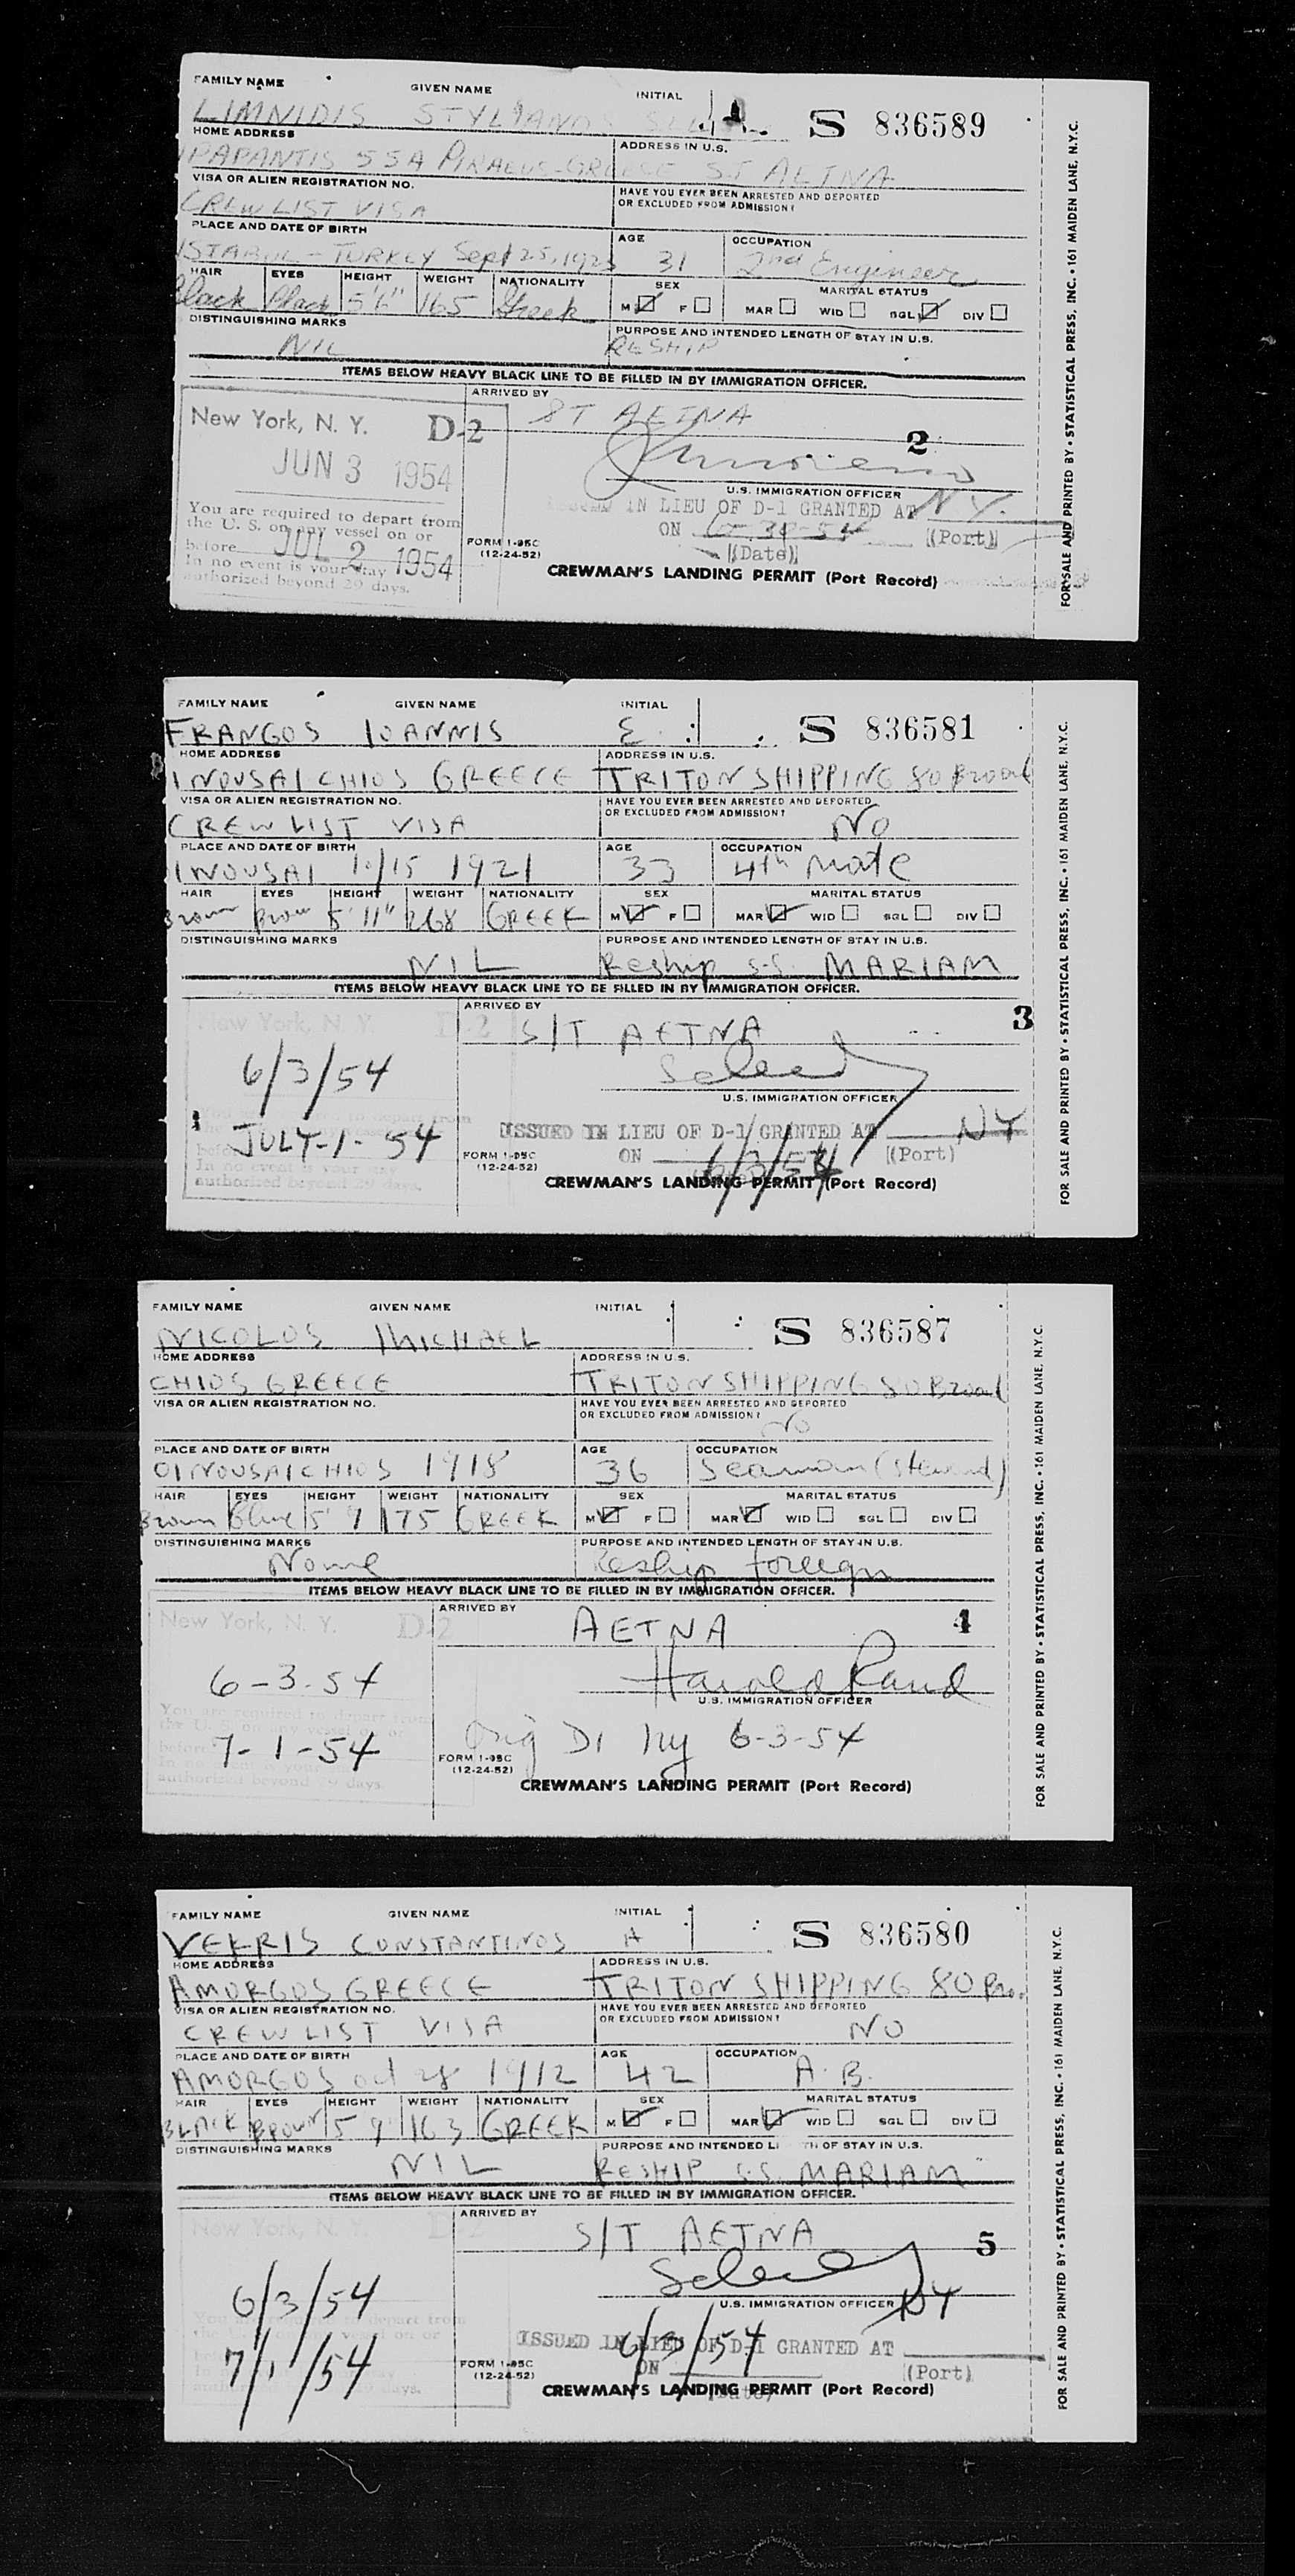 FAMILY NAME GIVEN NAME INITIAL
LIMNIDIS STYLIANOS S 836589
HOME ADDRESS ADDRESS IN U.S.
IPAPANTIS 55A PIRAEUS-GREECE ST AETNA
VISA OR ALIEN REGISTRATION NO. HAVE YOU EVER BEEN ARRESTED AND DEPORTED
OR EXCLUDED FROM ADMISSION?
CREW LIST VISA
PLACE AND DATE OF BIRTH AGE OCCUPATION
ISTABUL - TURKEY Sept 25, 1923 31 2nd Engineer
HAIR EYES HEIGHT WEIGHT NATIONALITY SEX MARITAL STATUS
Black Black 5'6" 165 Greek M F MAR WID SGL DIV
DISTINGUISHING MARKS PURPOSE AND INTENDED LENGTH OF STAY IN U.S.
NIL RESHIP
ITEMS BELOW HEAVY BLACK LINE TO BE FILLED IN BY IMMIGRATION OFFICER.
ARRIVED BY
New York, N. Y. D-2 ST AETNA
2
JUN 3 1954
U.S. IMMIGRATION OFFICER
You are required to depart from IN LIEU OF D-1 GRANTED AT N.Y.
the U. S. on any vessel on or ON (Port)
before JUL 2 1954 FORM I-95C (12-24-52) (Date)
In no event is your stay
authorized beyond 29 days.
CREWMAN'S LANDING PERMIT (Port Record)
FOR SALE AND PRINTED BY • STATISTICAL PRESS, INC. • 161 MAIDEN LANE, N.Y.C.
FAMILY NAME GIVEN NAME INITIAL
FRANGOS IOANNIS E S 836581
HOME ADDRESS ADDRESS IN U.S.
INOUSAI CHIOS GREECE TRITON SHIPPING 80 Broad
VISA OR ALIEN REGISTRATION NO. HAVE YOU EVER BEEN ARRESTED AND DEPORTED
OR EXCLUDED FROM ADMISSION?
CREW LIST VISA NO
PLACE AND DATE OF BIRTH AGE OCCUPATION
INOUSAI 1921 33 4th Mate
HAIR EYES HEIGHT WEIGHT NATIONALITY SEX MARITAL STATUS
Brown Brown 5'11" 268 GREEK M F MAR WID SGL DIV
DISTINGUISHING MARKS PURPOSE AND INTENDED LENGTH OF STAY IN U.S.
NIL Reship S.S. MARIAM
ITEMS BELOW HEAVY BLACK LINE TO BE FILLED IN BY IMMIGRATION OFFICER.
ARRIVED BY 3
New York, N D-2 S/T AETNA
6/3/54
U.S. IMMIGRATION OFFICER
JULY-1-54 ISSUED IN LIEU OF D-1 GRANTED AT NY
FORM I-95C (12-24-52) ON 6/3/54 (Port)
In no event is your
authorized beyond 29 days.
CREWMAN'S LANDING PERMIT (Port Record)
FOR SALE AND PRINTED BY • STATISTICAL PRESS, INC. • 161 MAIDEN LANE, N.Y.C.
FAMILY NAME GIVEN NAME INITIAL
NICOLOS MICHAEL S 836587
HOME ADDRESS ADDRESS IN U.S.
CHIOS GREECE TRITON SHIPPING 80 Broad
VISA OR ALIEN REGISTRATION NO. HAVE YOU EVER BEEN ARRESTED AND DEPORTED
OR EXCLUDED FROM ADMISSION?
No
PLACE AND DATE OF BIRTH AGE OCCUPATION
OINOUSAI CHIOS 1918 36 Seaman (Steward)
HAIR EYES HEIGHT WEIGHT NATIONALITY SEX MARITAL STATUS
Brown Blue 5 7 175 GREEK M F MAR WID SGL DIV
DISTINGUISHING MARKS PURPOSE AND INTENDED LENGTH OF STAY IN U.S.
None Reship foreign
ITEMS BELOW HEAVY BLACK LINE TO BE FILLED IN BY IMMIGRATION OFFICER.
ARRIVED BY
New York, N. Y. D-2 AETNA 4
6-3-54 Harold Rand
U.S. IMMIGRATION OFFICER
7-1-54 Orig D1 NY 6-3-54
FORM I-95C (12-24-52)
authorized beyond 29 days.
CREWMAN'S LANDING PERMIT (Port Record)
FOR SALE AND PRINTED BY • STATISTICAL PRESS, INC. • 161 MAIDEN LANE, N.Y.C.
FAMILY NAME GIVEN NAME INITIAL
VEKRIS CONSTANTINOS A S 836580
HOME ADDRESS ADDRESS IN U.S.
AMORGOS GREECE TRITON SHIPPING 80 Bro.
VISA OR ALIEN REGISTRATION NO. HAVE YOU EVER BEEN ARRESTED AND DEPORTED
OR EXCLUDED FROM ADMISSION?
CREW LIST VISA NO
PLACE AND DATE OF BIRTH AGE OCCUPATION
AMORGOS oct 28 1912 42 A.B.
HAIR EYES HEIGHT WEIGHT NATIONALITY SEX MARITAL STATUS
BLACK BROWN 5 9 163 GREEK M F MAR WID SGL DIV
DISTINGUISHING MARKS PURPOSE AND INTENDED L TH OF STAY IN U.S.
NIL RESHIP S.S. MARIAM
ITEMS BELOW HEAVY BLACK LINE TO BE FILLED IN BY IMMIGRATION OFFICER.
ARRIVED BY
New York, N. D-2 S/T AETNA 5
6/3/54
U.S. IMMIGRATION OFFICER NY
7/1/54 ISSUED IN LIEU OF D-1 GRANTED AT
6/3/54
FORM I-95C (12-24-52) ON (Port)
(Date)
CREWMAN'S LANDING PERMIT (Port Record)
FOR SALE AND PRINTED BY • STATISTICAL PRESS, INC. • 161 MAIDEN LANE, N.Y.C.